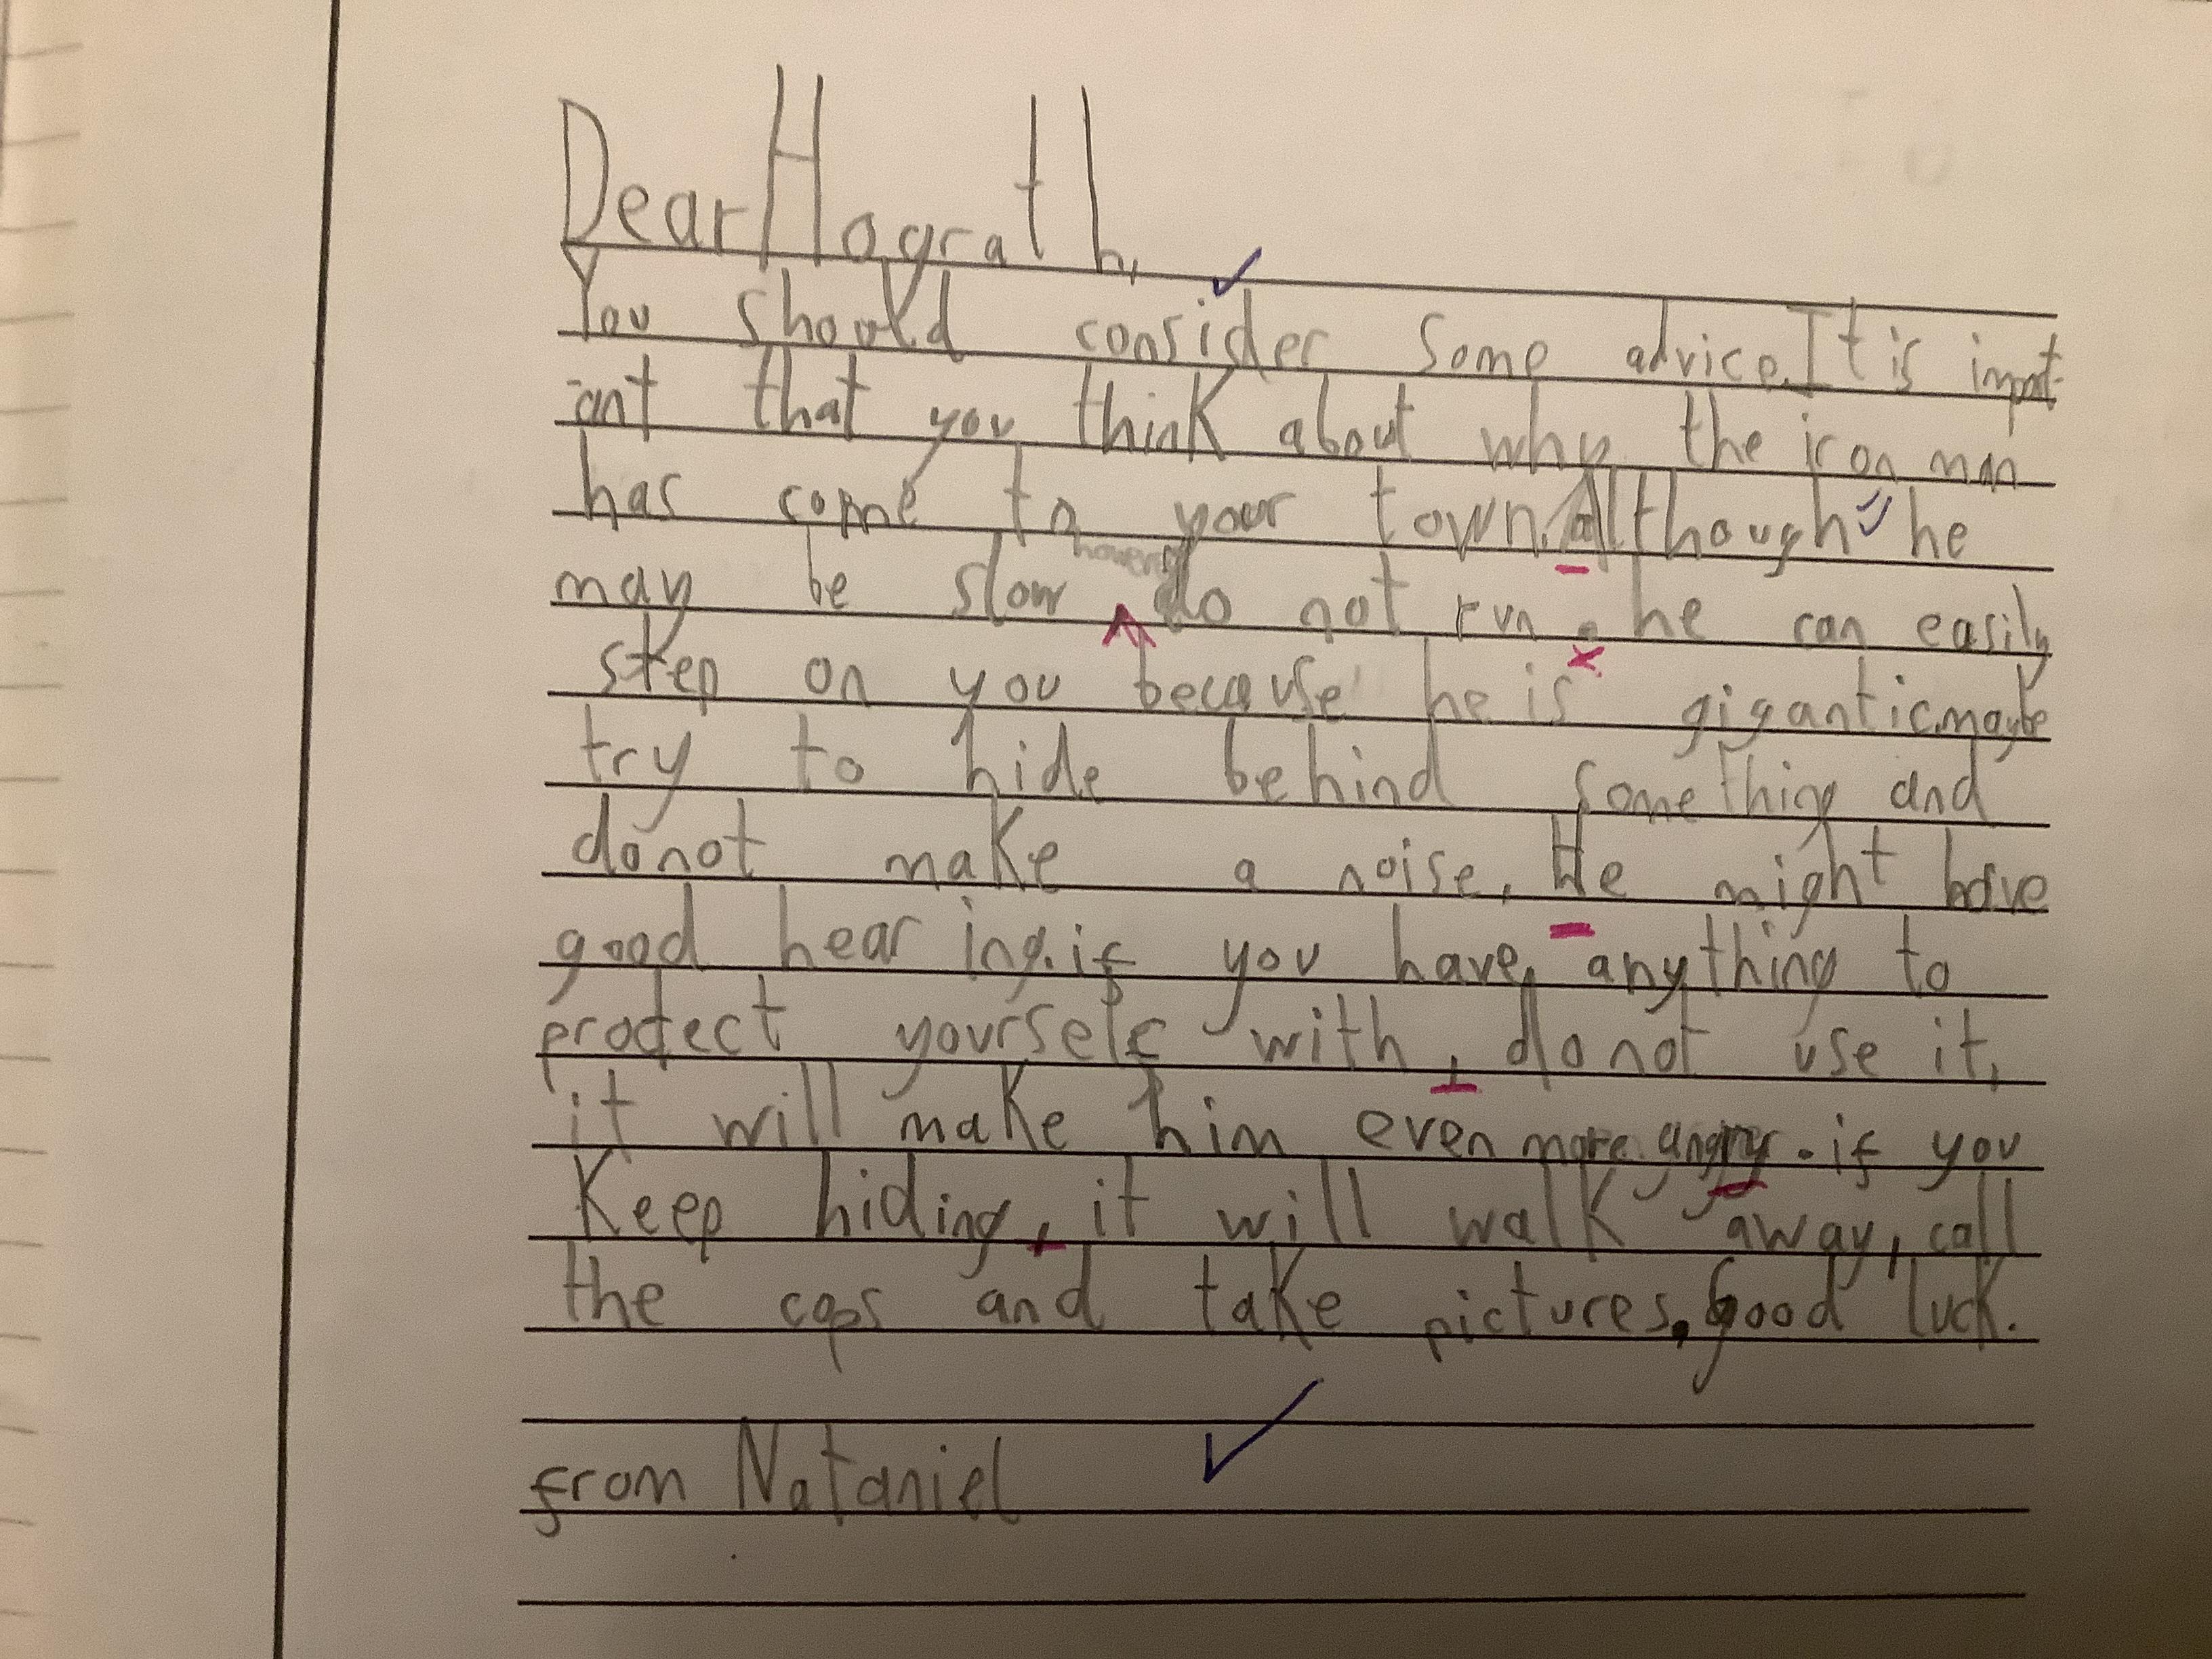 Dear Hograth,
You should consider some advice. It is import-
ant that you think about why the iron man
has come to your town. Although he
may be slow do not run he can easily
step on you because he is gigantic.maybe
try to hide behind something and
do not make a noise. He might have
good hearing.if you have anything to
protect yourself with, do not use it,
it will make him even more angry. if you
Keep hiding, it will walk away, call
the cops and take pictures. Good luck.
from Nataniel